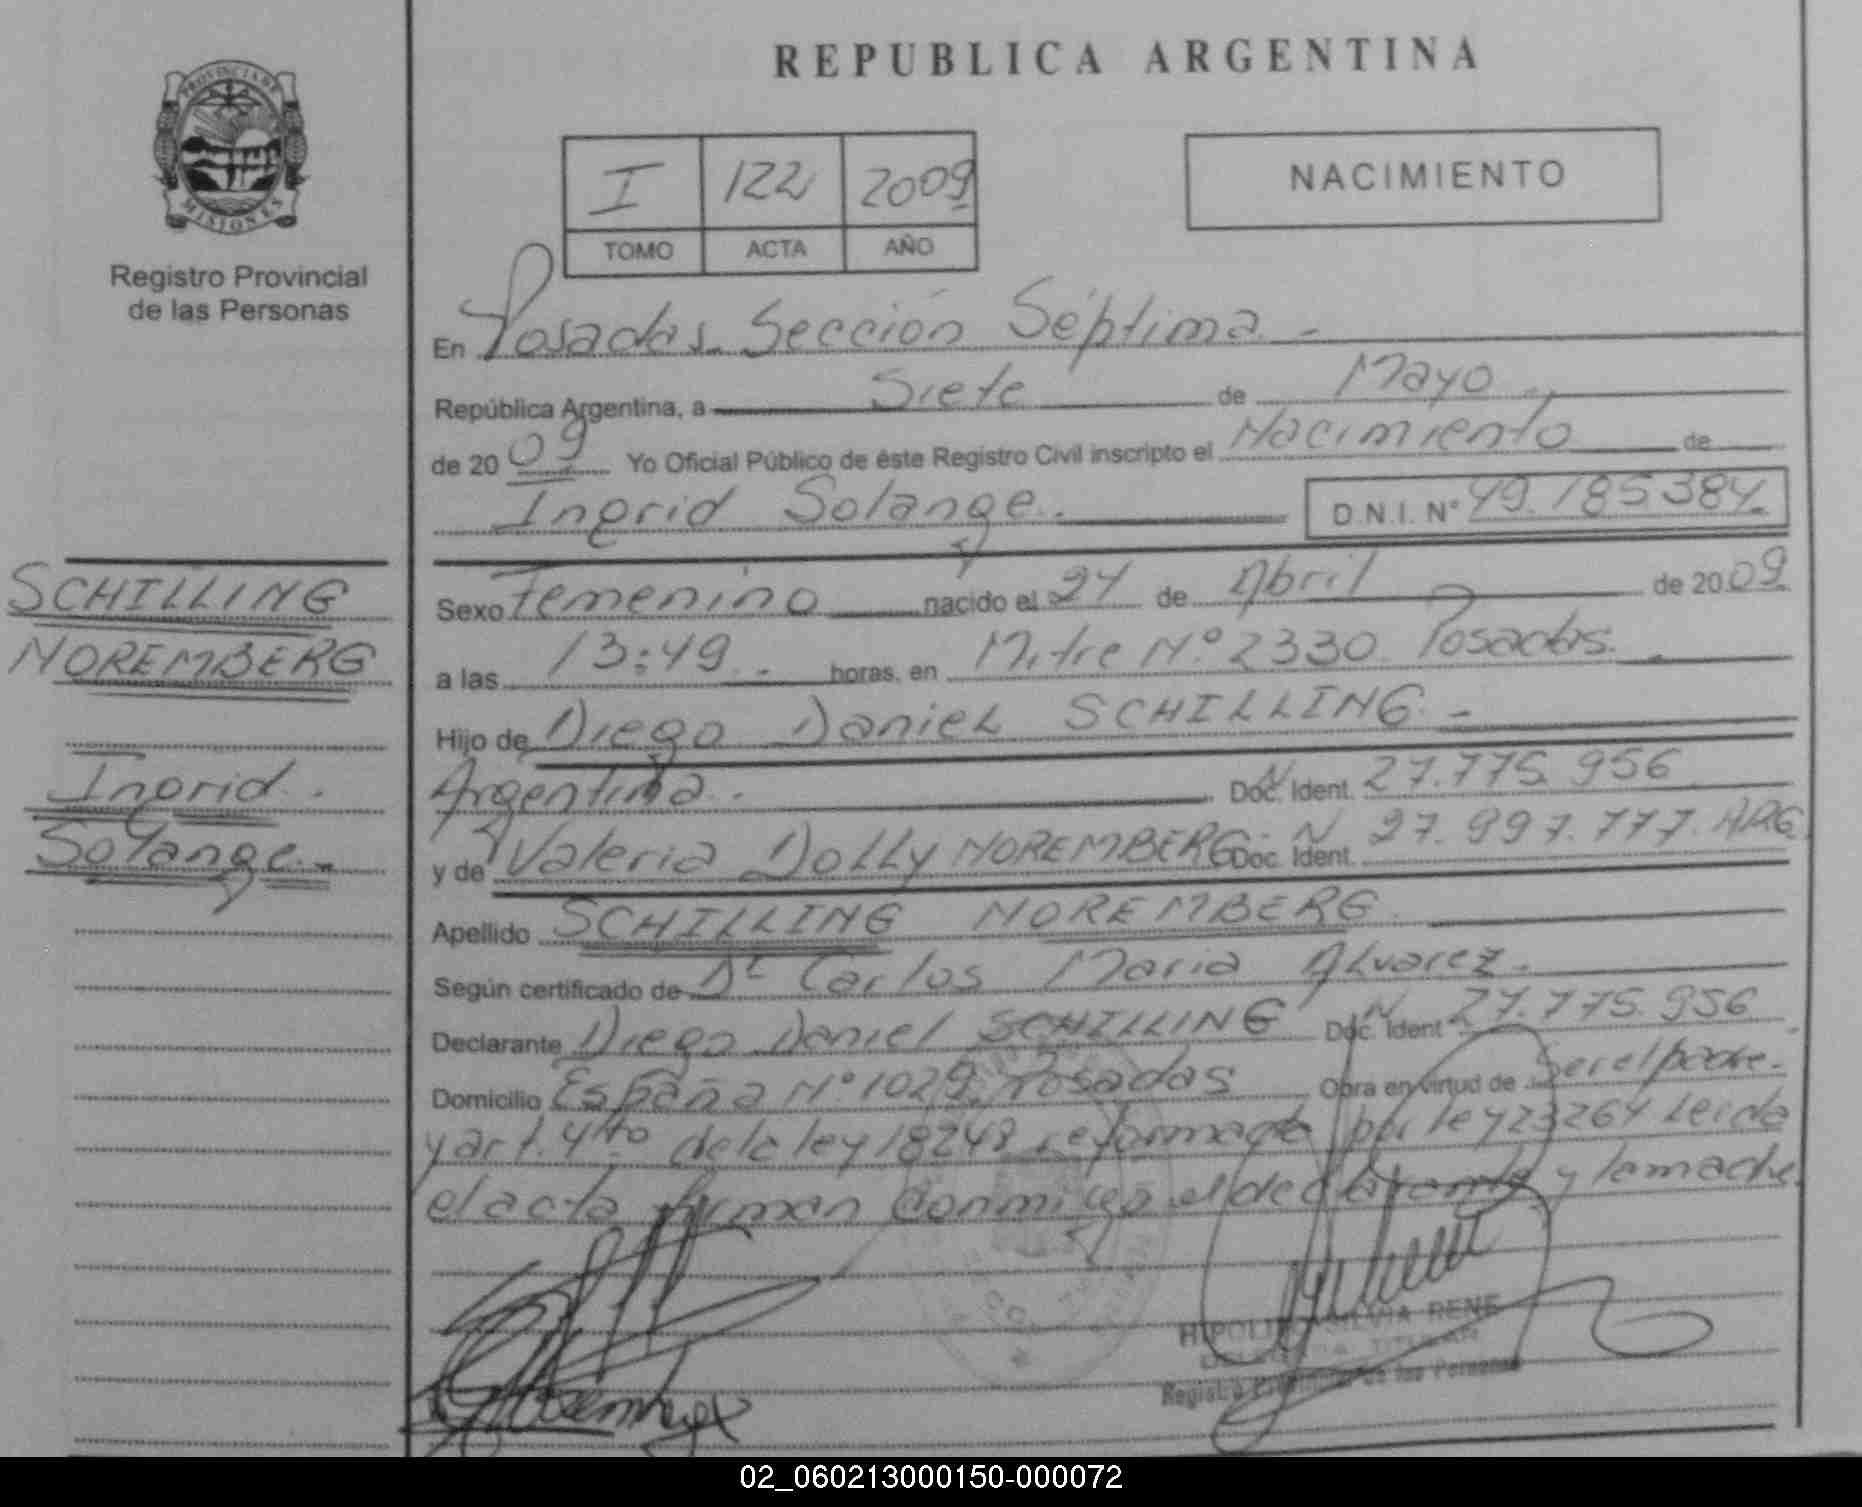 REPUBLICA ARGENTINA
PROVINCIA DE
MISIONES
Registro Provincial
de las Personas
I 122 2009
TOMO ACTA AÑO
NACIMIENTO
En Posadas. Sección Séptima. -
República Argentina, a Siete de Mayo
de 20 09 Yo Oficial Público de éste Registro Civil inscripto el Nacimiento de
Ingrid Solange. D.N.I. Nº 49.185384.
SCHILLING
NOREMBERG
Ingrid.
Solange.-
Sexo Femenino nacido el 24 de Abril de 20 09
a las 13:49. - horas, en Mitre Nº 2330. Posadas. -
Hijo de Diego Daniel SCHILLING. -
Argentina. Doc. Ident. 27.775.956
y de Valeria Dolly NOREMBERG Doc. Ident. 27.997.777. ARG
Apellido SCHILLING NOREMBERG.
Según certificado de Dr Carlos Maria Alvarez.
Declarante Diego Daniel SCHILLING Doc. Ident 27.775.956
Domicilio España Nº 1029. Posadas Obra en virtud de Ser el padre.
y art. 4to de la ley 18248 reformada por ley 23264 Leida
el acta firman conmigo el declarante y la madre.
SILVIA RENE
TITULAR
Registro Provincial de las Personas
02_060213000150-000072